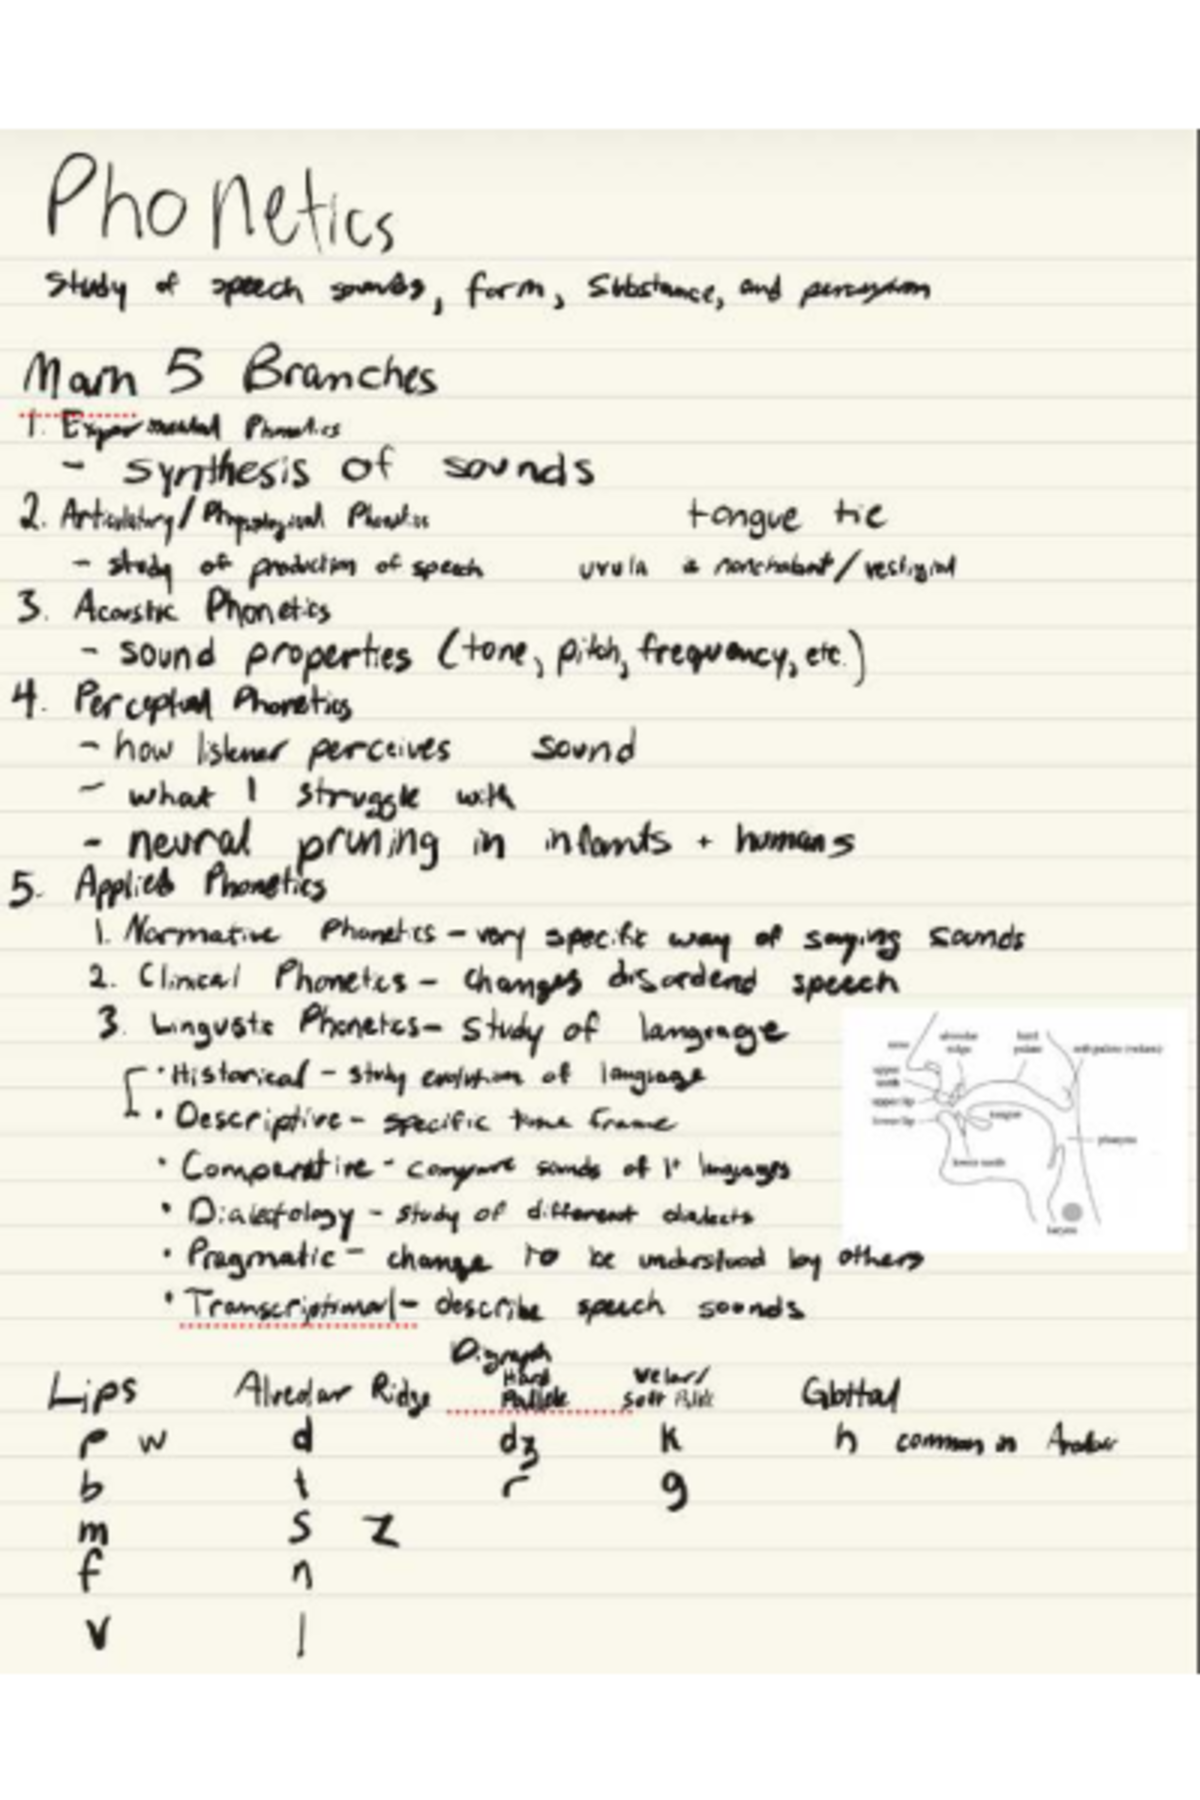 Phonetics
Study of speech sounds, form, Substance, and
Main 5 Branches
1. Experimental Phonetics
- synthesis of sounds
2. Articulatory/Physiological Phonetics
tongue tie
- study of production of speech
uvula is nonchalant/vestigial
3. Acoustic Phonetics
- sound properties (tone, pitch, frequency, etc.)
4. Perceptual Phonetics
- how listener perceives sound
- what I struggle with
- neural pruning in infants + humans
5. Applied Phonetics
1. Normative Phonetics - very specific way of saying sounds
2. Clinical Phonetics - changes disorderd speech
3. Lingustic Phonetics - study of language
• Historical - study evolution of language
• Descriptive - specific time frame
• Comparative - compare sounds of 1+ languages
• Dialectology - study of different dialects
• Pragmatic - change to be understood by others
• Transcriptional - describe speech sounds
nose
alveolar ridge
hard palate
soft palate (velum)
upper teeth
upper lip
lower lip
tongue
lower teeth
pharynx
larynx
Digraph
Lips Alveolar Ridge Hard Pallete Velar/ Soft Glottal
p w d dʒ k h common in
b t r g
m s z
f n
v l